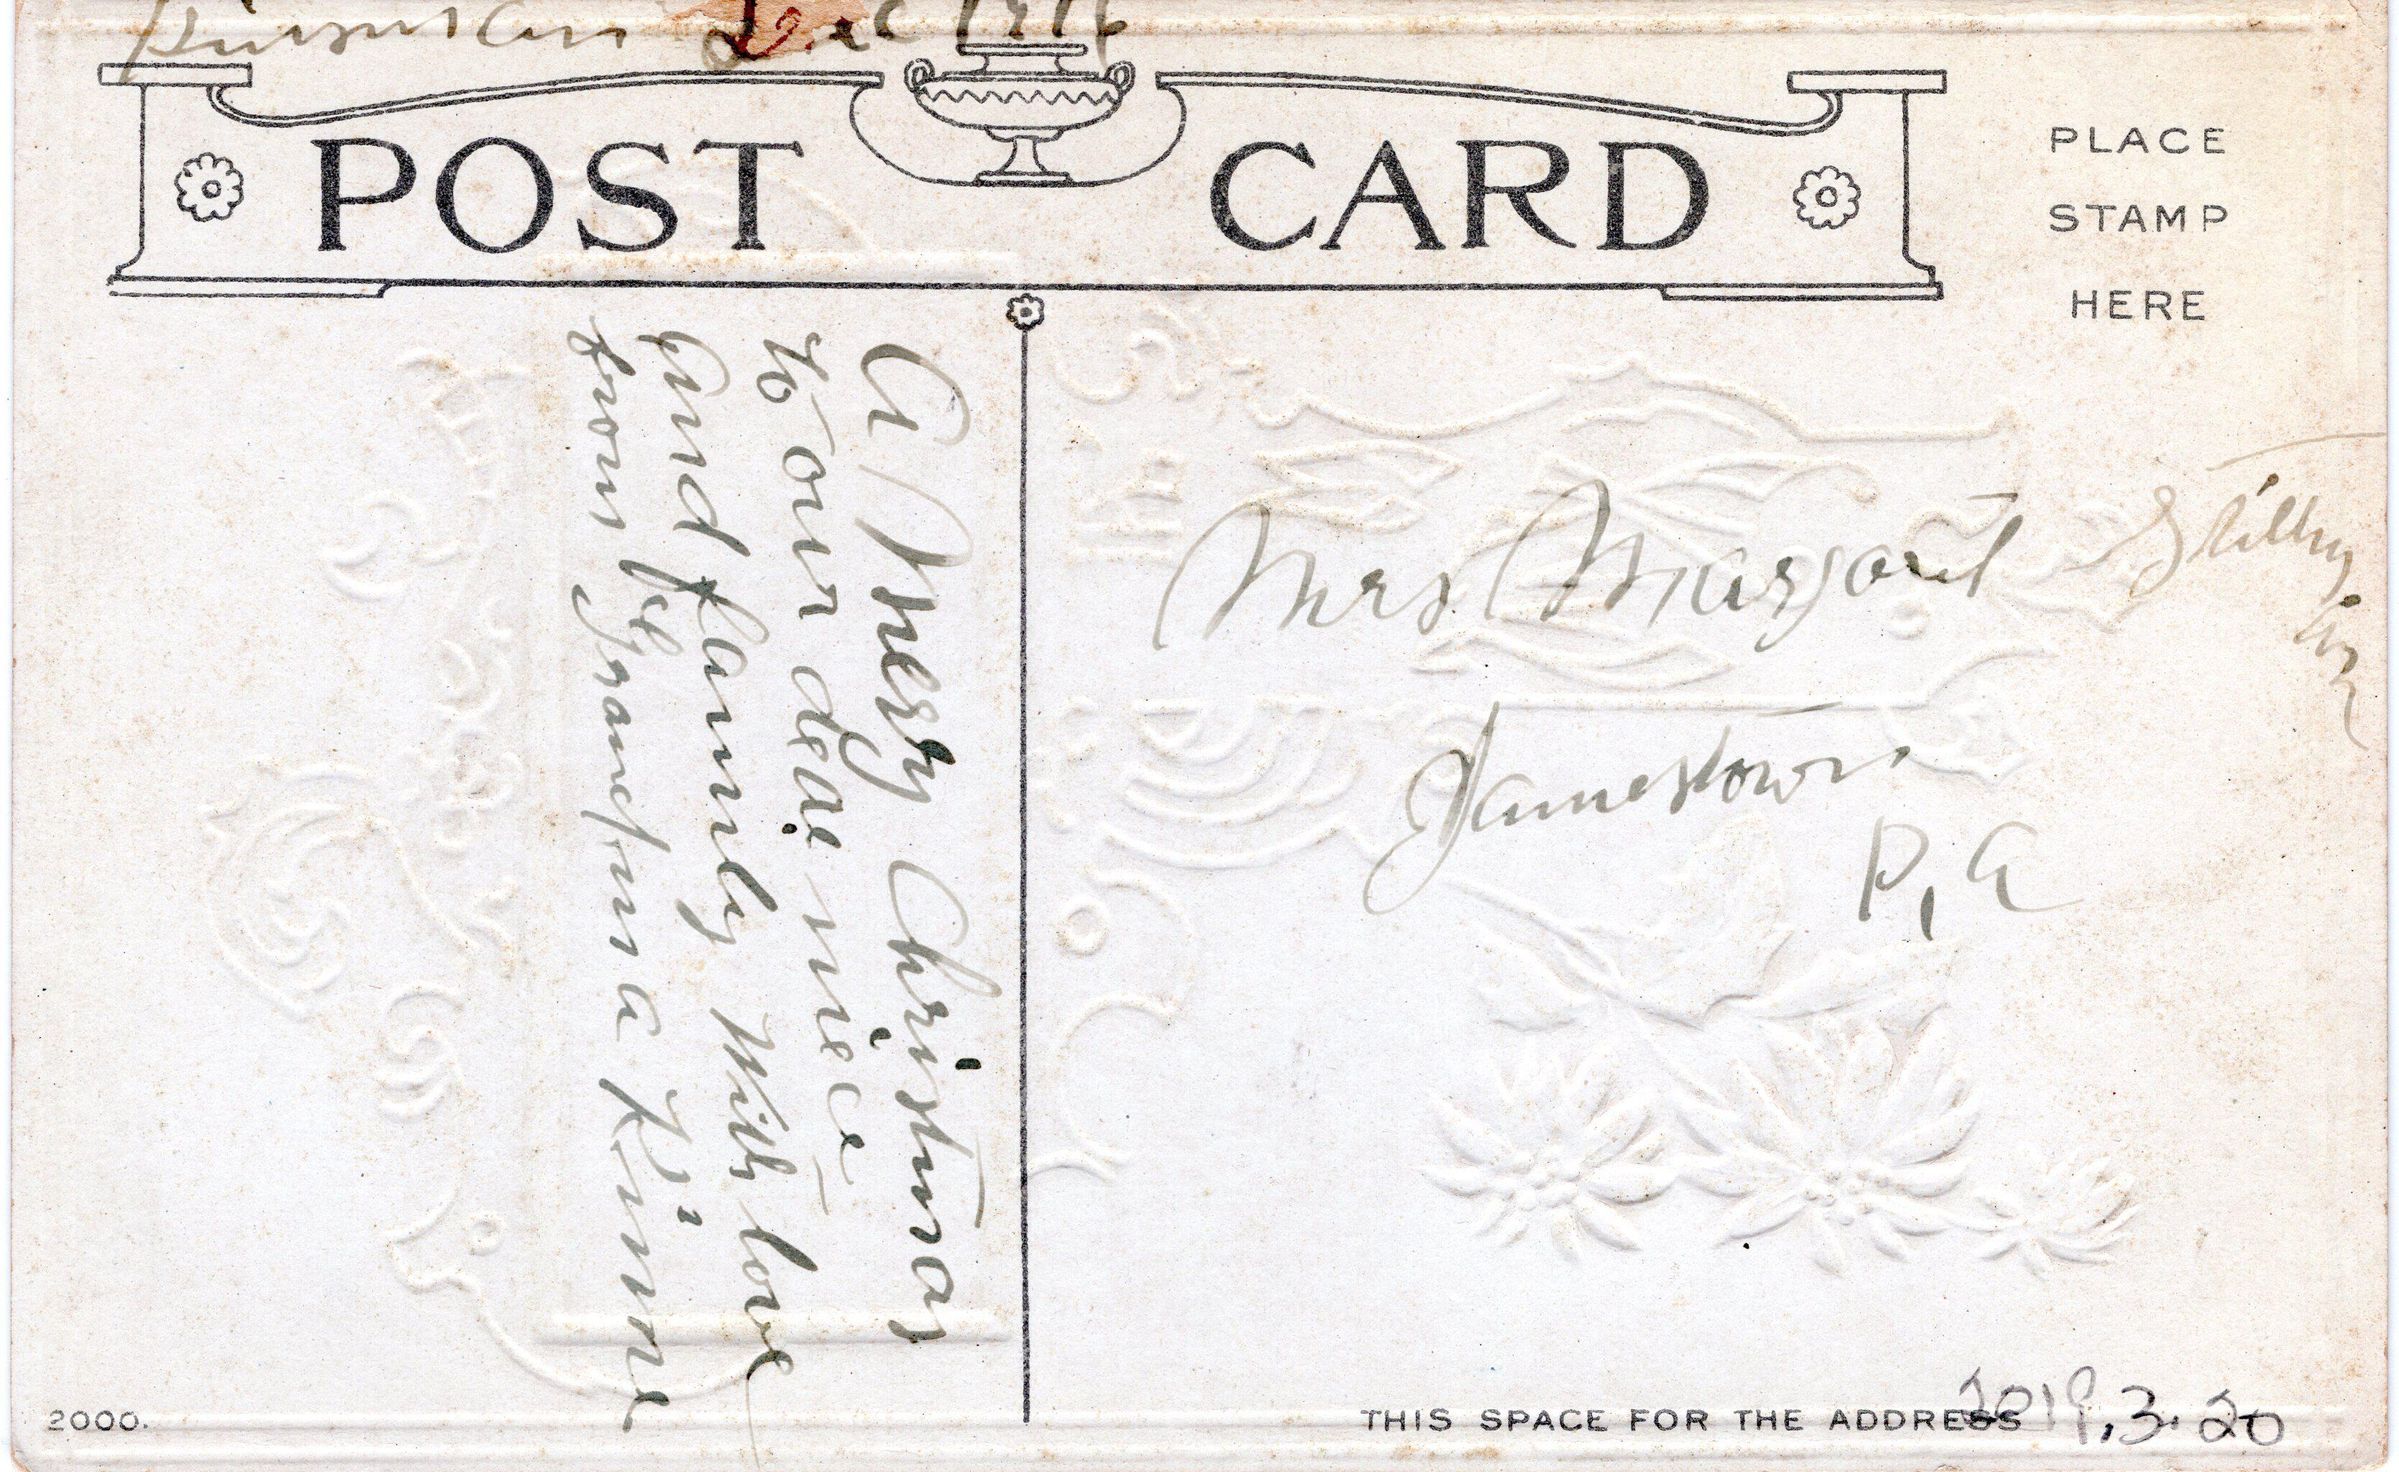 Kinsman Dec 1916
POST CARD
PLACE
STAMP
HERE
A Merry Christmas
to our dear niece
and family with love
from Grandma Kinne
Mrs Margaret
Jamestown
P, A
2000.
THIS SPACE FOR THE ADDRESS
2019.3.20